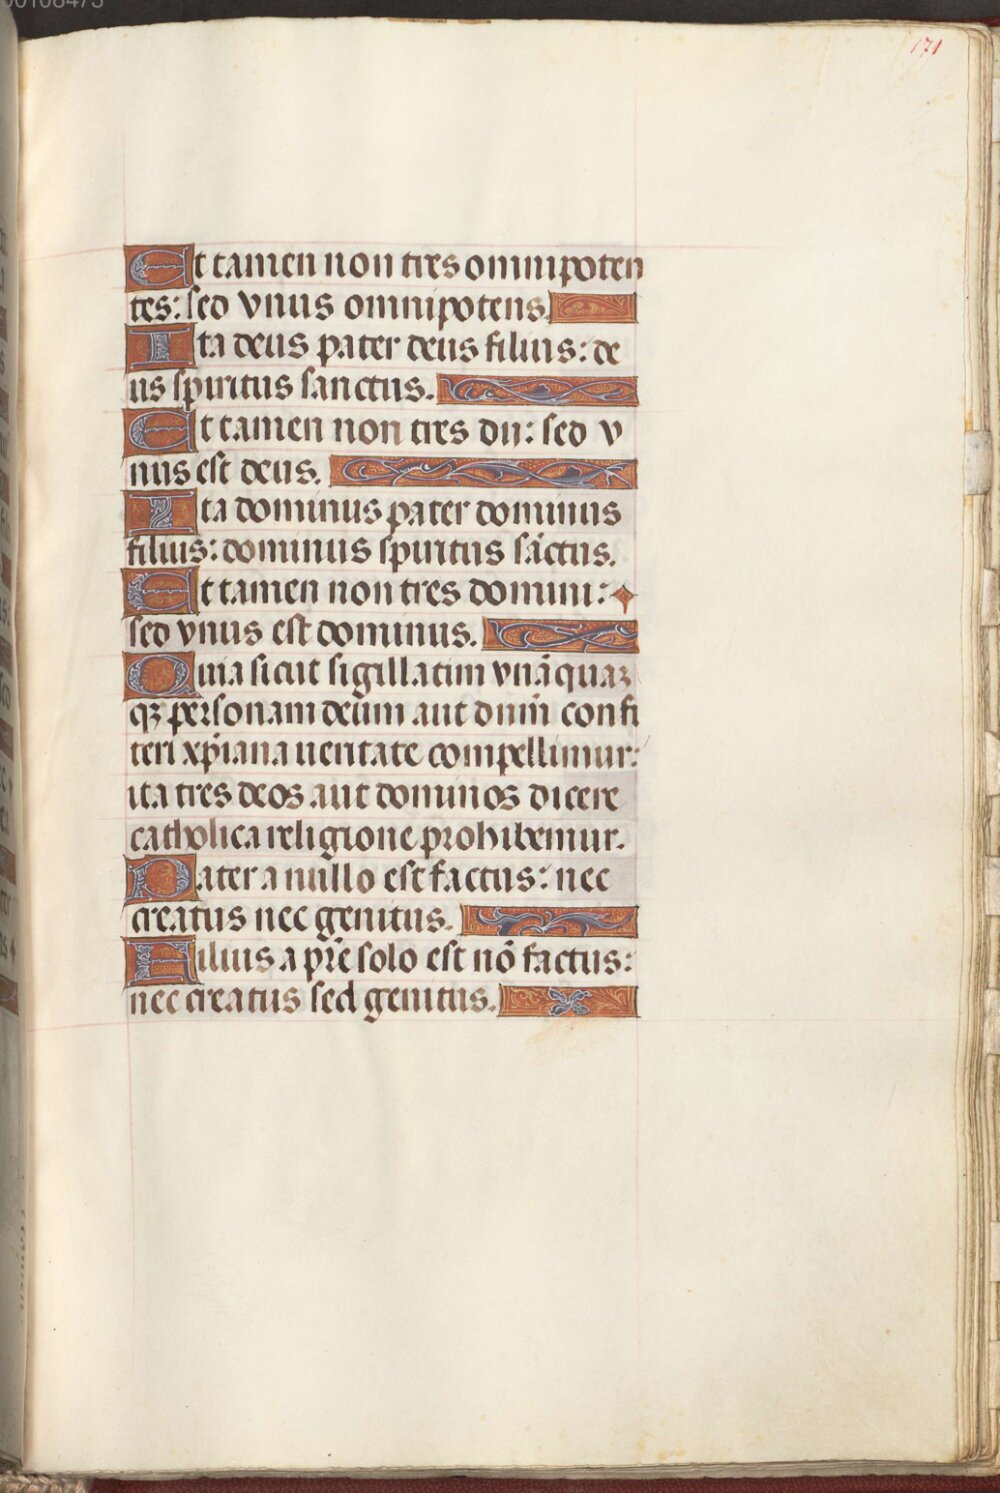 00108473
171
Et tamen non tres omnipoten
tes: sed vnus omnipotens.
Ita deus pater deus filius: de
us spiritus sanctus.
Et tamen non tres dii: sed v
nus est deus.
Ita dominus pater dominus
filius: dominus spiritus sāctus.
Et tamen non tres domini:
sed vnus est dominus.
Quia sicut sigillatim vnāquaꝫ
qꝫ personam deum aut dnm̄ confi
teri xp̄iana ueritate compellimur:
ita tres deos aut dominos dicere
catholica religione prohibemur.
Pater a nullo est factus: nec
creatus nec genitus.
Filius a pr̄e solo est nō factus:
nec creatus sed genitus.